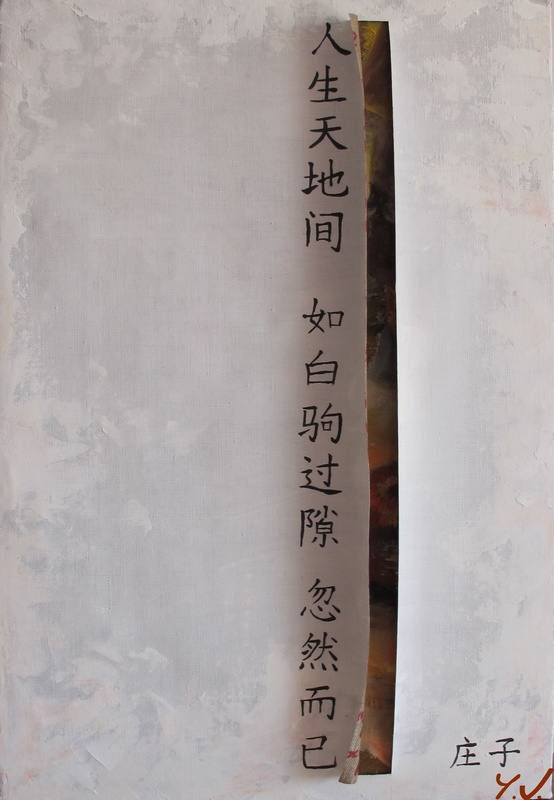 人生天地间 如白驹过隙 忽然而已
庄子
Y.V.